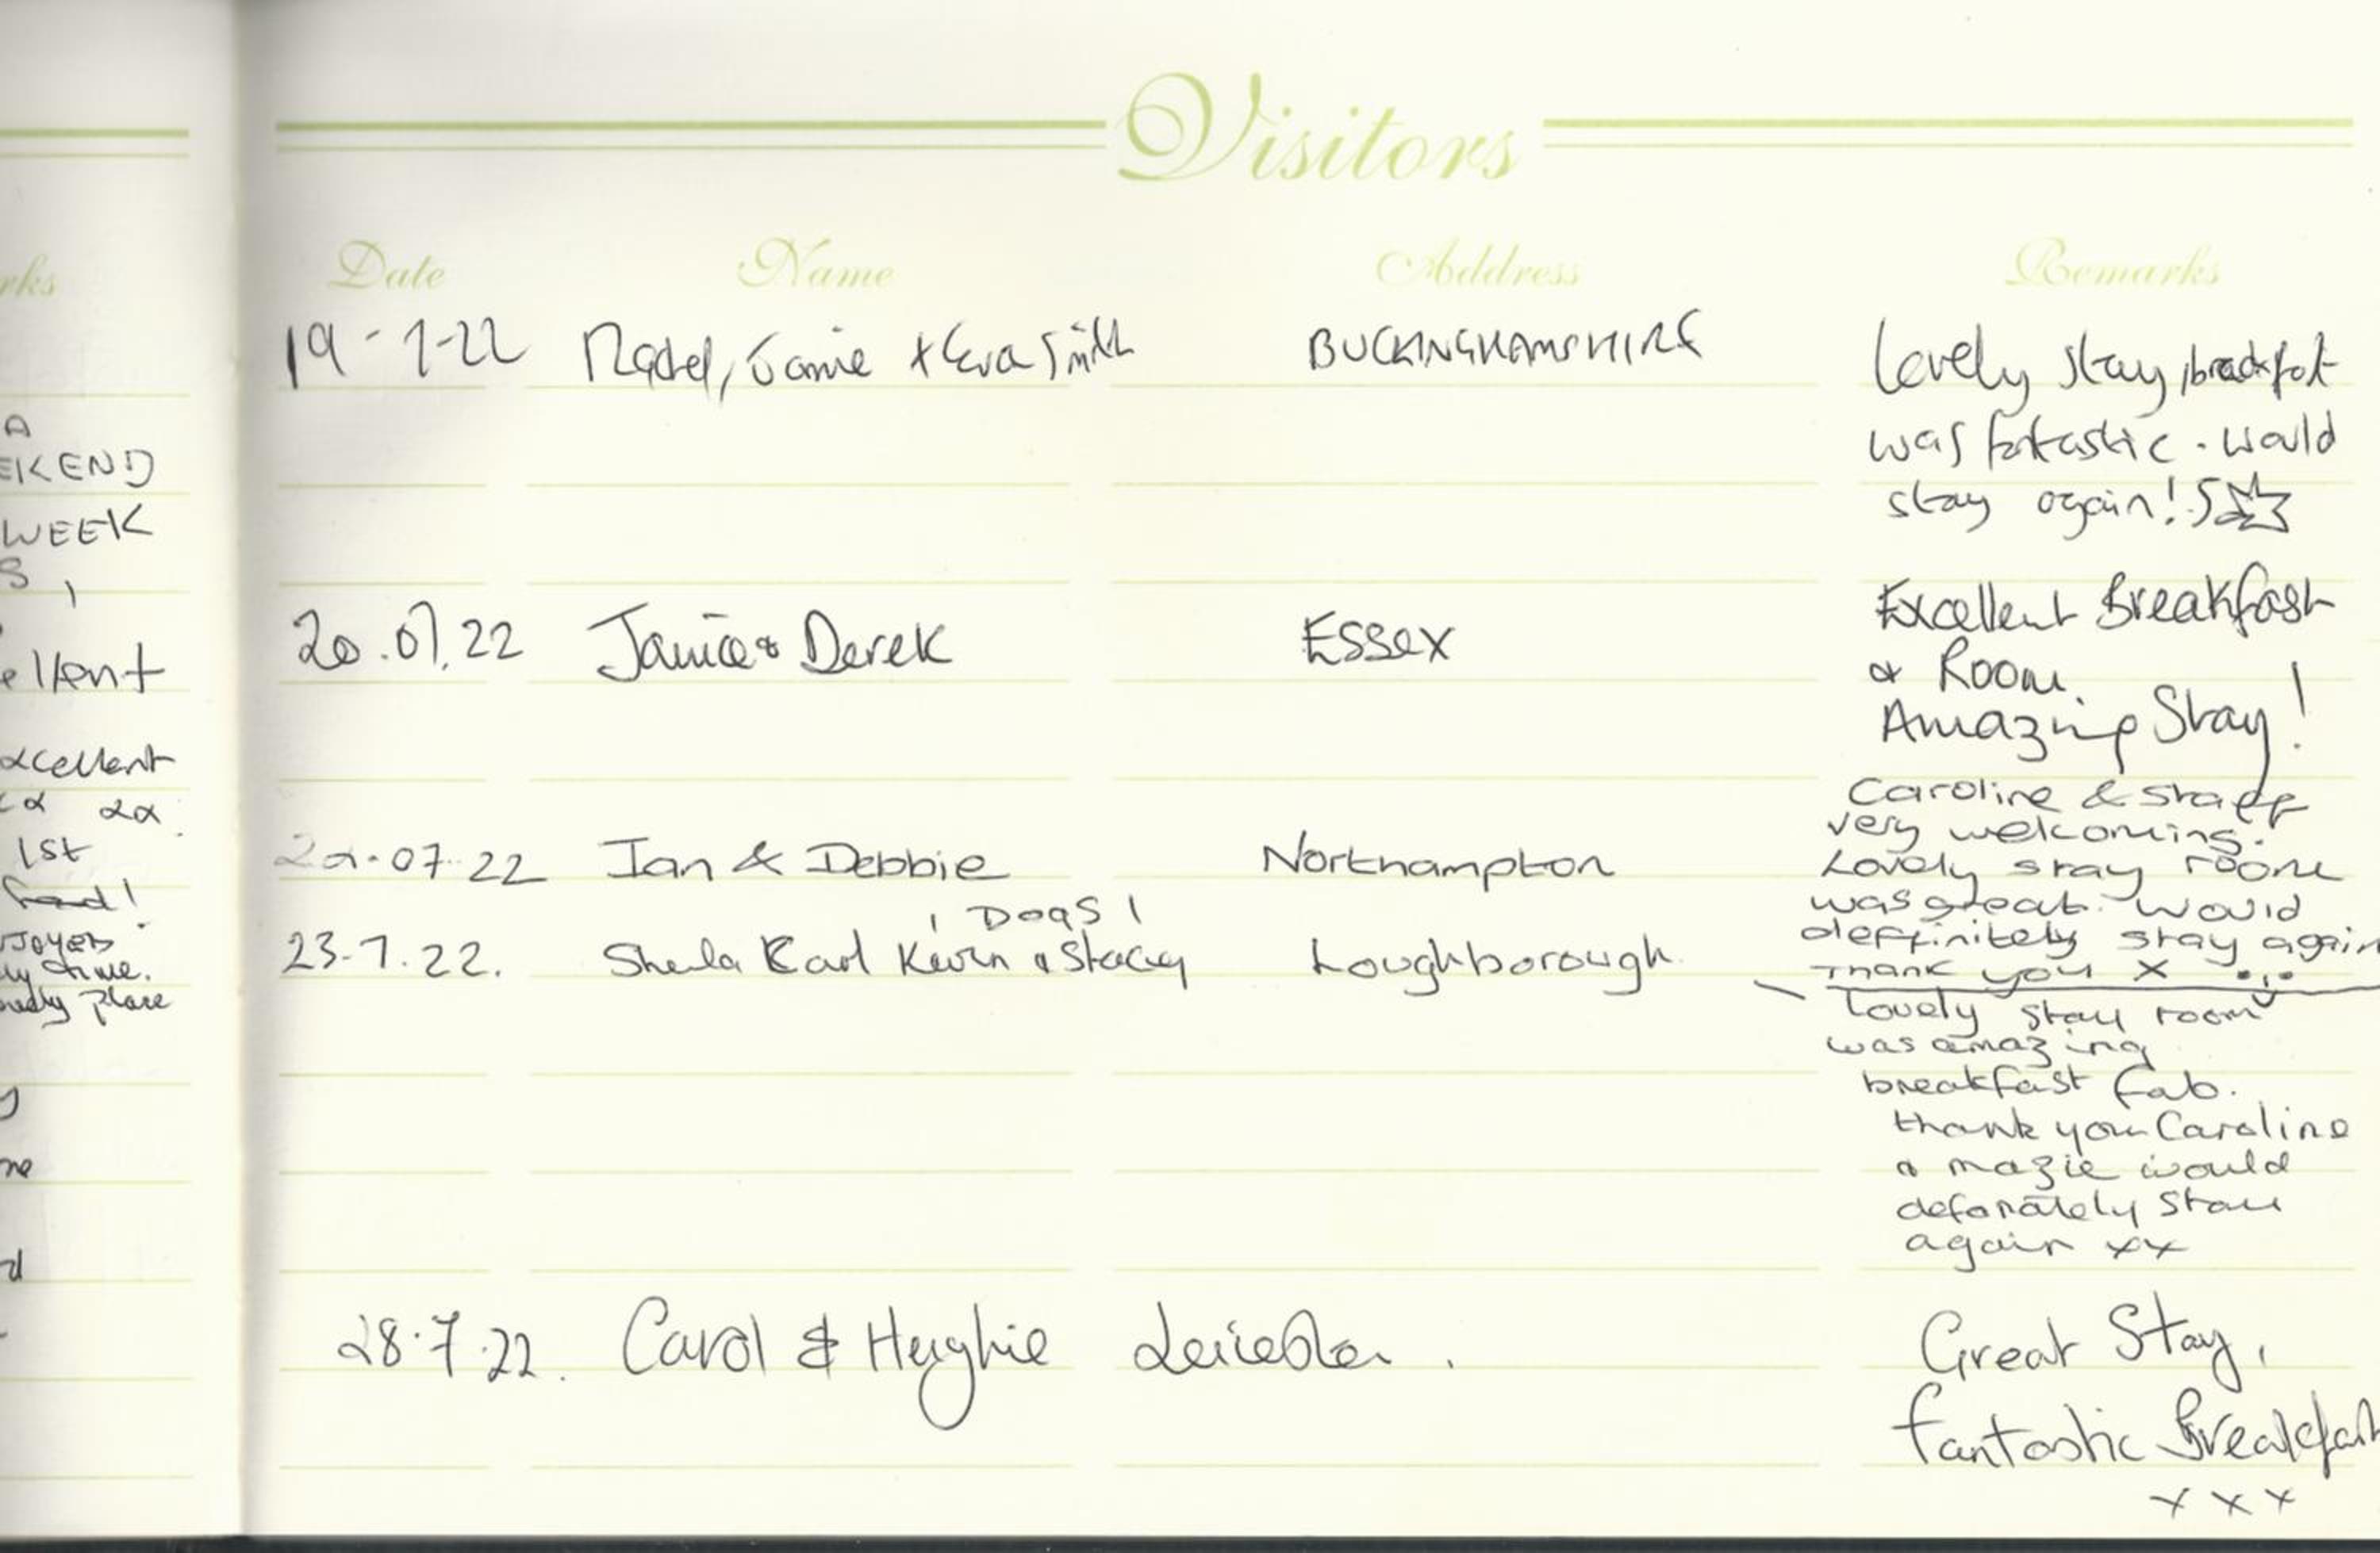 Visitors
rks
Date Name Address Remarks
19-7-22 Rachel, Jamie + Eva Smith BUCKINGHAMSHIRE Lovely stay, breakfast
was fantastic. would
stay again! 5
20.07.22 Janice & Derek Essex Excellent Breakfast
& Room.
Amazing Stay!
07.22 Ian & Debbie Northampton Caroline & staff
very welcoming.
Lovely stay room
was great. would
deffinitely stay again
Thank you x
Dogs
23.7.22. Sheila Karl Kevin & Stacey Loughborough. Lovely stay room
was amazing
breakfast fab.
thank you Caroline
& mazie would
defanately stay
again xx
28.7.22. Carol & Hughie Leicester. Great Stay,
fantastic Breakfast
x x x
A
EKEND
WEEK
S,
ellent
xcellent
1st
food!
NJOYED
ly time.
ovely place
ne
d